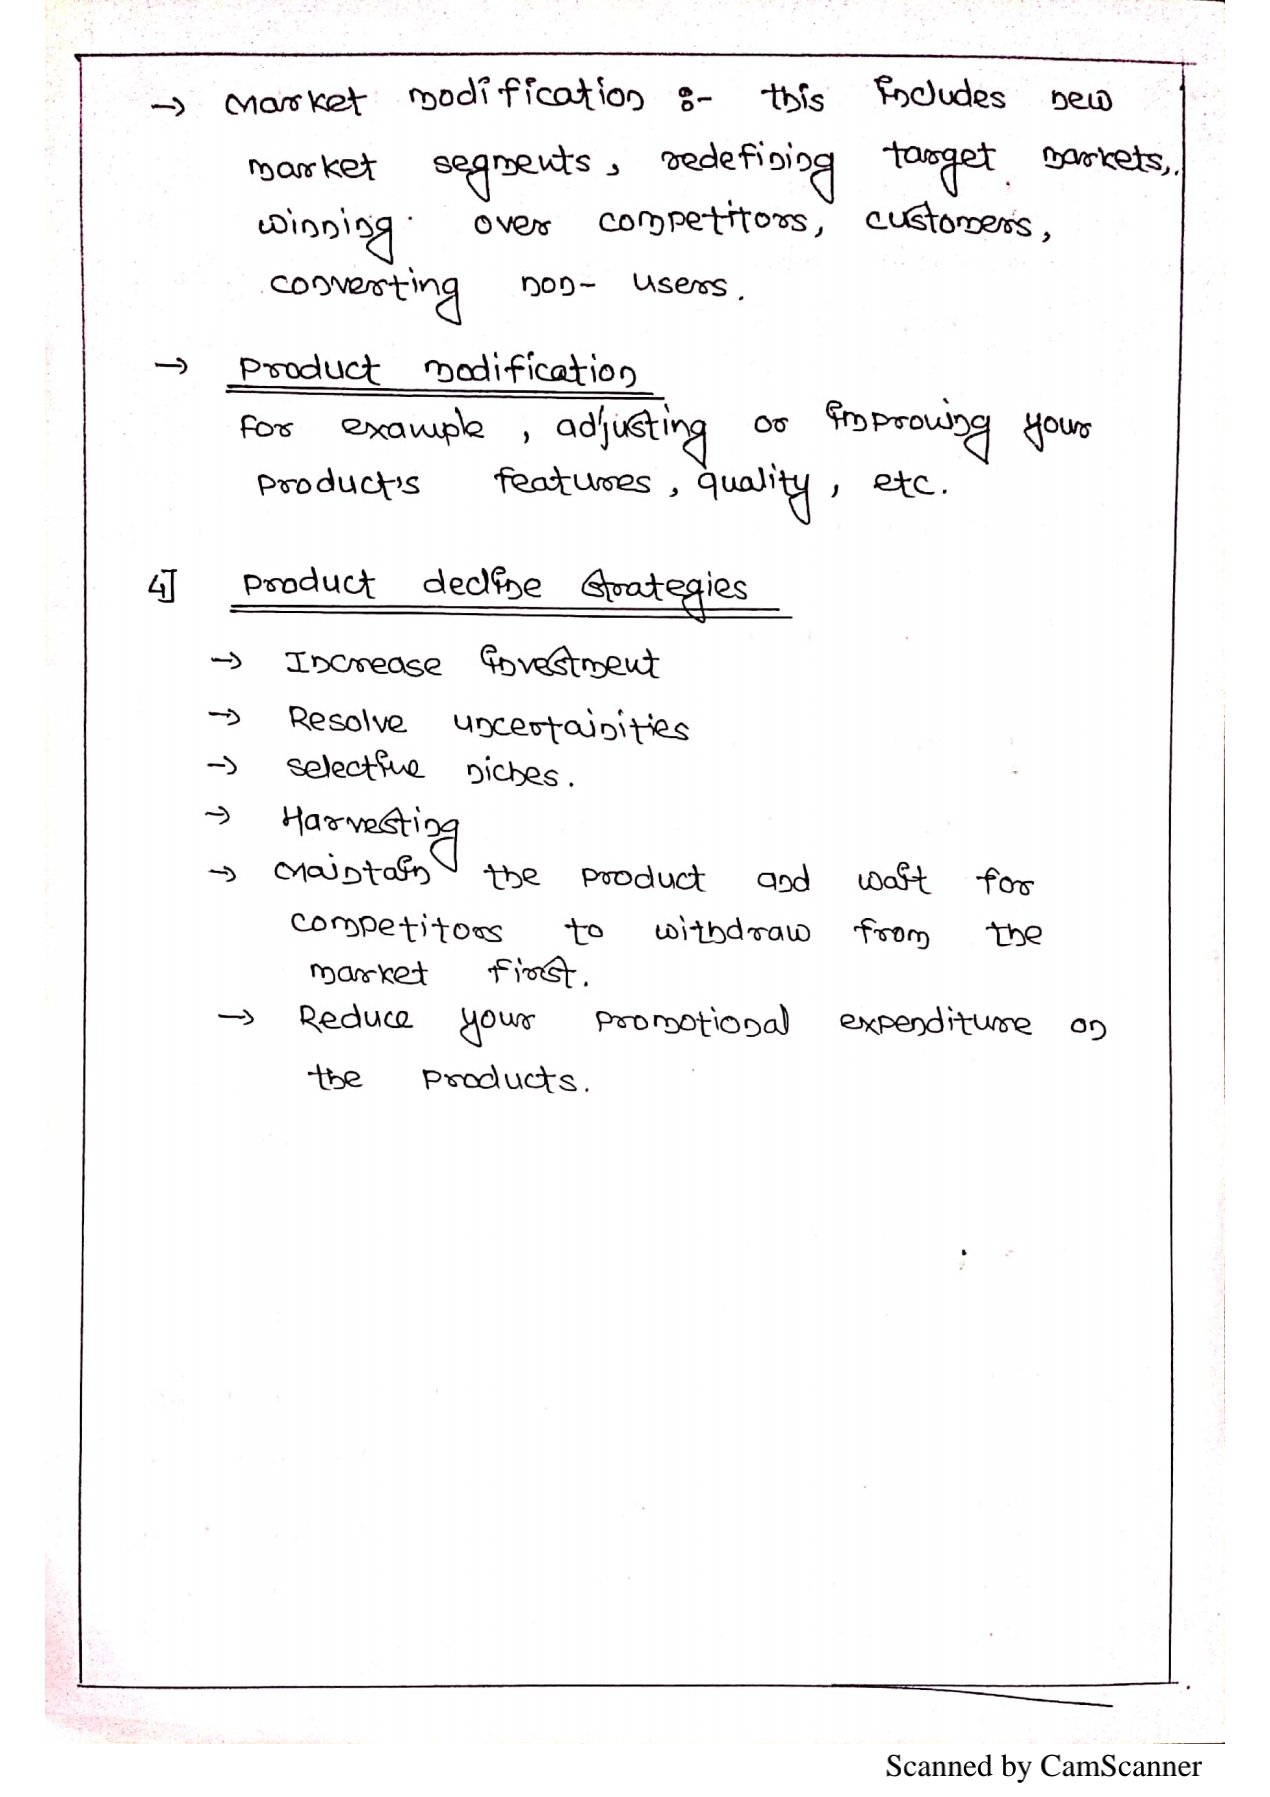 → Market modification :- this includes new
market segments, redefining target markets,
winning over competitors, customers,
converting non- users.
→ Product modification
For example, adjusting or improving your
product's features, quality, etc.
4] Product decline strategies
→ Increase investment
→ Resolve uncertainities
→ selective niches.
→ Harvesting
→ Maintain the product and wait for
competitors to withdraw from the
market first.
→ Reduce your promotional expenditure on
the products.
Scanned by CamScanner